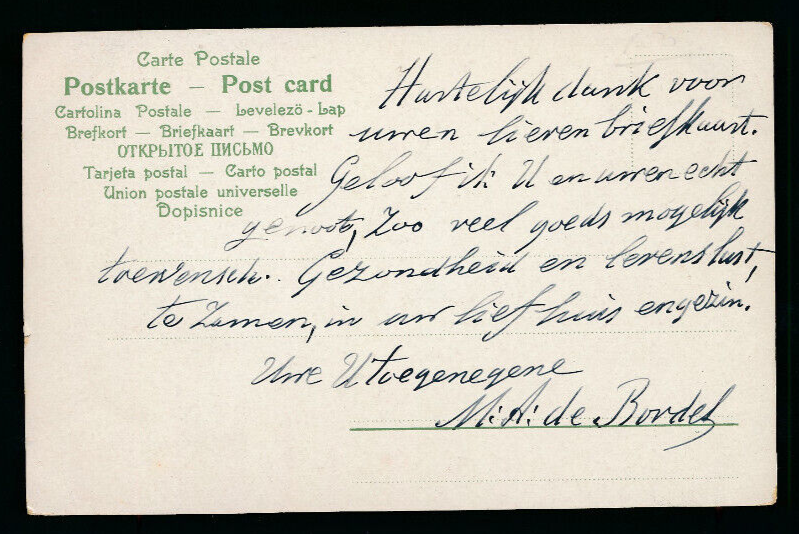 Carte Postale
Postkarte — Post card
Cartolina Postale — Levelezö-Lap
Brefkort — Briefkaart — Brevkort
ОТКРЫТОЕ ПИСЬМО
Tarjeta postal — Carto postal
Union postale universelle
Dopisnice
Hartelijk dank voor
uwen lieven briefkaart.
Geloof ik U en uwen echt
genoot, Zoo veel goeds mogelijk
toewensch. Gezondheid en levenslust,
te Zamen, in uw lief huis en gezin.
Uwe U toegenegene
M. A. de Bordes